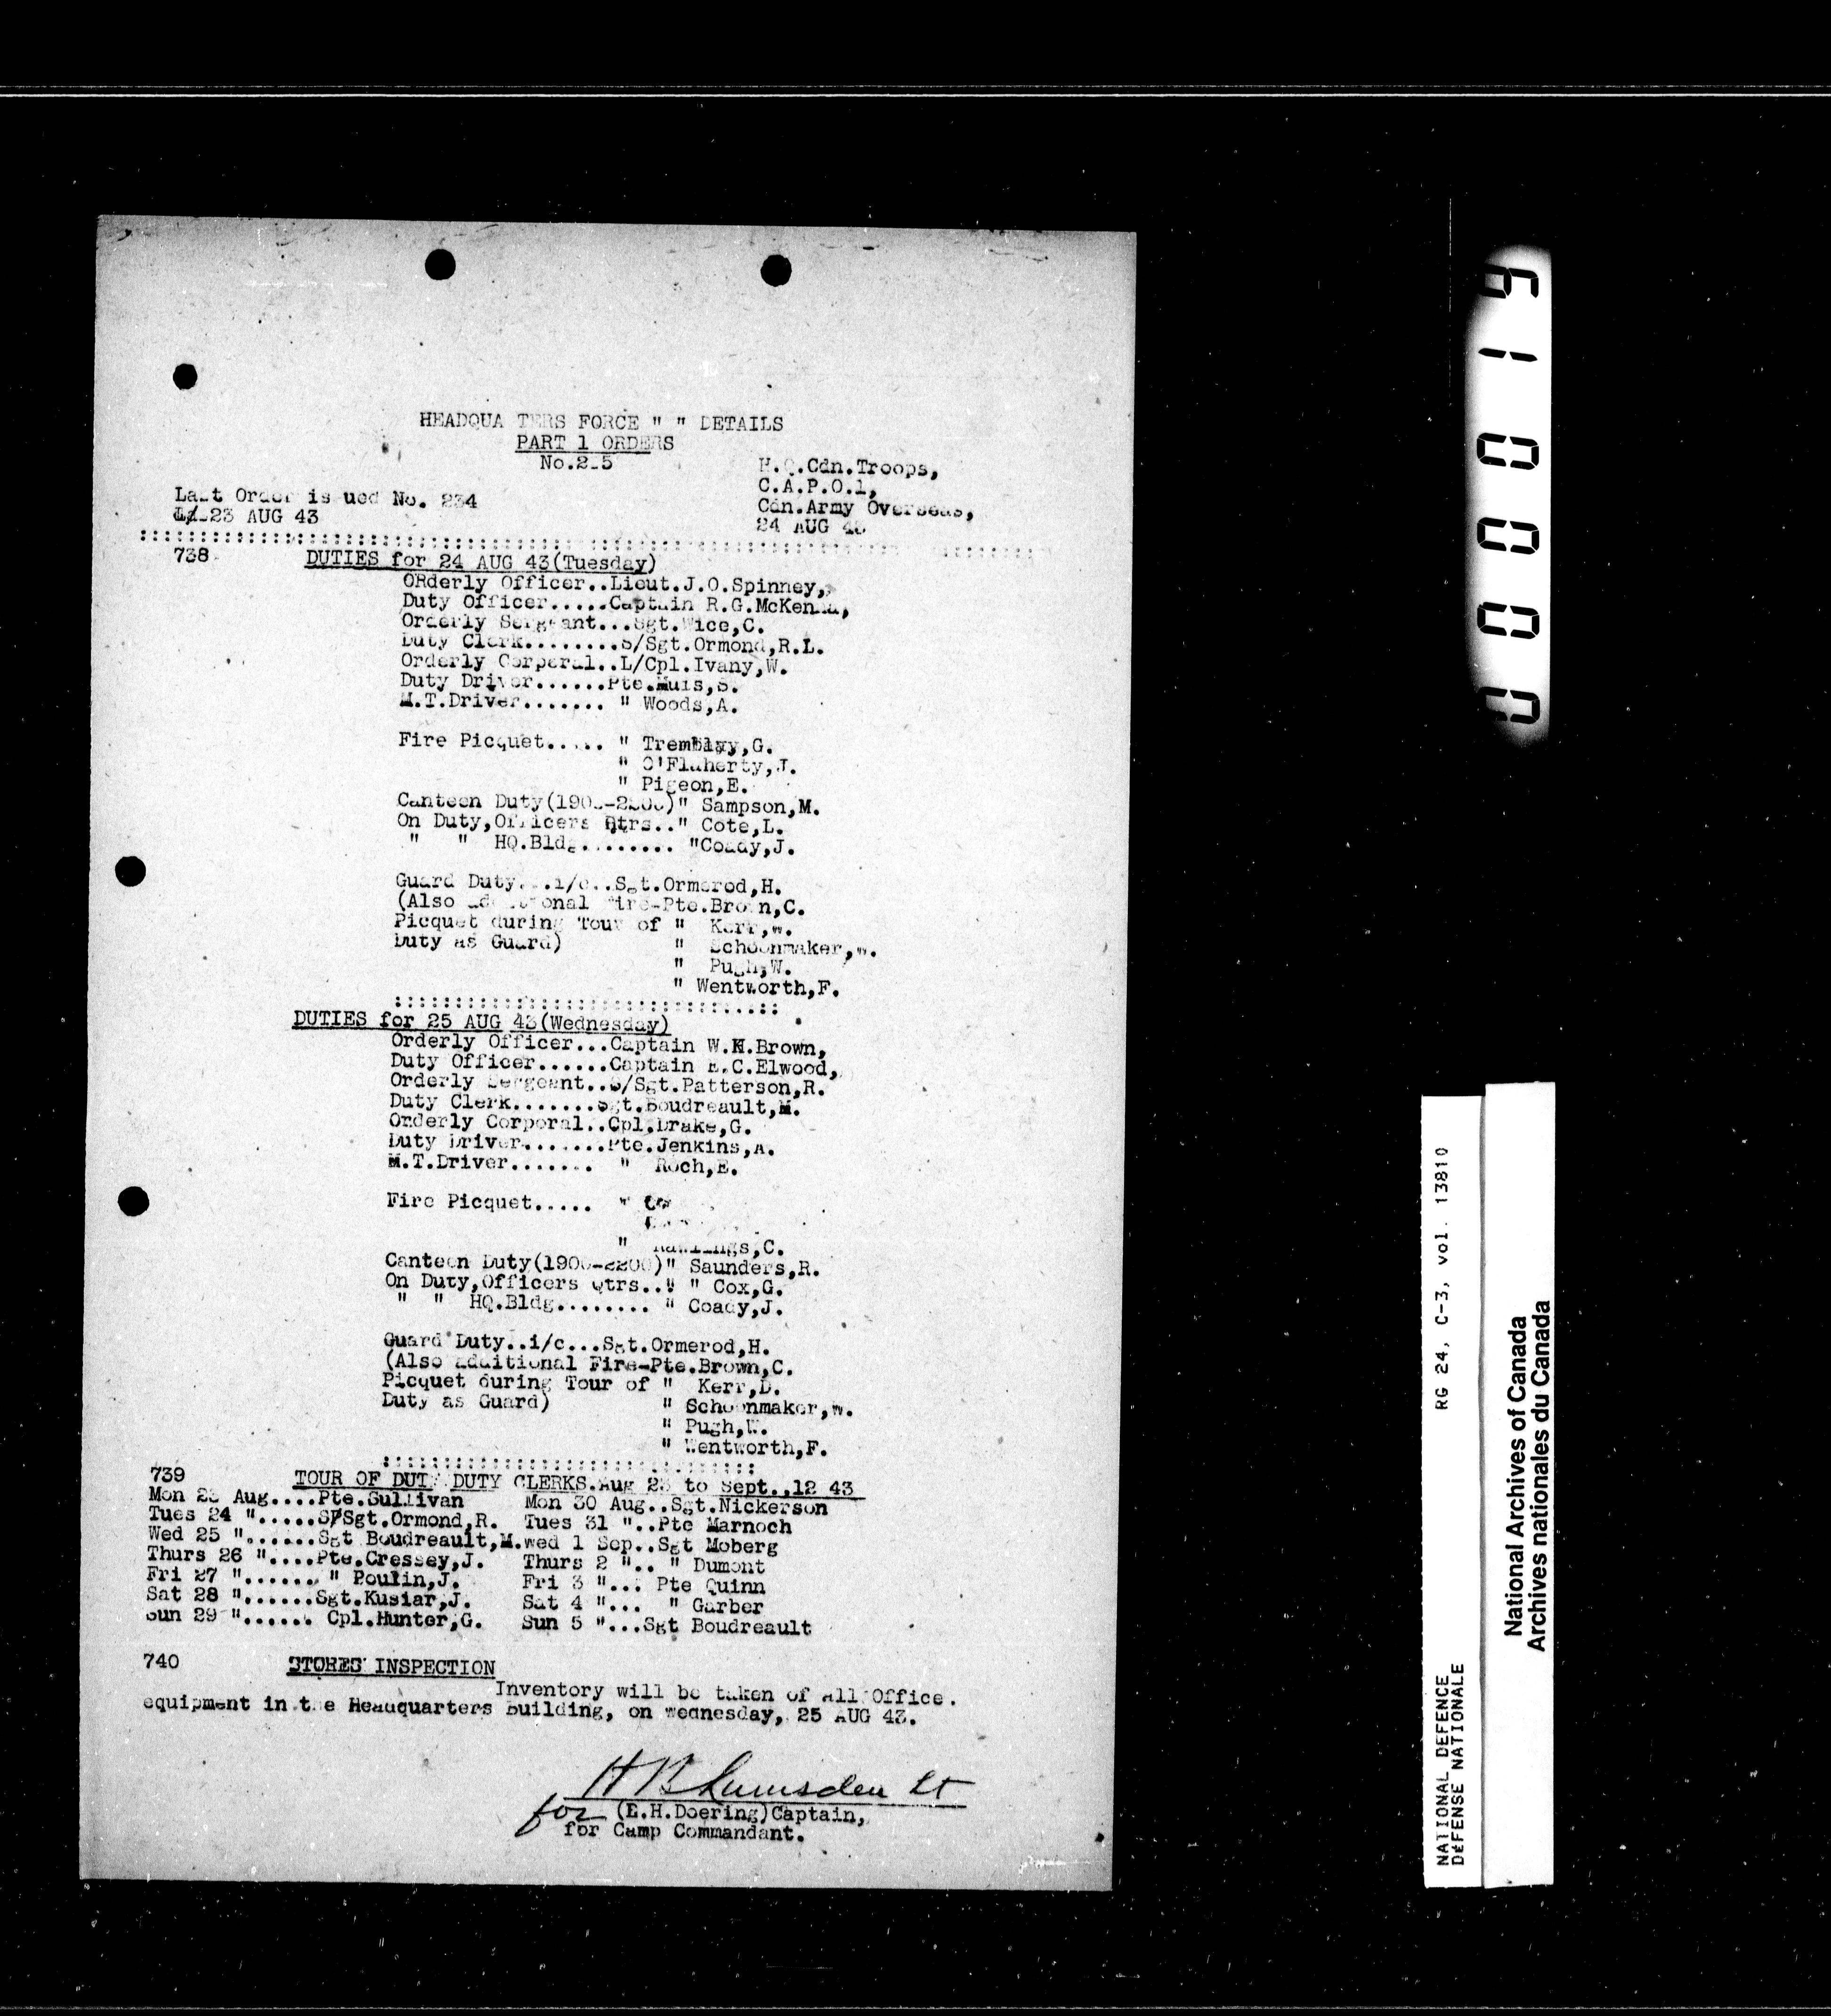 HEADQUA TERS FORCE " " DETAILS
PART 1 ORDERS
No.2 5
H.Q.Cdn.Troops,
C.A.P.O.1,
Cdn.Army Overseas,
24 AUG 43
Last Order is ued No. 234
23 AUG 43
738 DUTIES for 24 AUG 43(Tuesday)
ORderly Officer..Lieut.J.O.Spinney,
Duty Officer.....Captain R.G.McKenna,
Orderly Sergeant...Sgt.Wice,C.
Duty Clerk........S/Sgt.Ormond,R.L.
Orderly Corporal..L/Cpl.Ivany,W.
Duty Driver......Pte.Muis,S.
M.T.Driver....... " Woods,A.
Fire Picquet..... " Tremblay,G.
" O'Flaherty,J.
" Pigeon,E.
Canteen Duty(1900-2200)" Sampson,M.
On Duty,Officers Qtrs.." Cote,L.
" " HQ.Bldg........ "Coady,J.
Guard Duty...i/c..Sgt.Ormerod,H.
(Also additional Fire-Pte.Brown,C.
Picquet during Tour of " Kerr,W.
Duty as Guard) " Schoonmaker,W.
" Pugh,W.
" Wentworth,F.
DUTIES for 25 AUG 43(Wednesday)
Orderly Officer...Captain W.H.Brown,
Duty Officer......Captain E.C.Elwood,
Orderly Sergeant..S/Sgt.Patterson,R.
Duty Clerk.......Sgt.Boudreault,M.
Orderly Corporal..Cpl.Drake,G.
Duty Driver.......Pte.Jenkins,A.
M.T.Driver....... " Roch,E.
Fire Picquet..... "
" Rawlings,C.
Canteen Duty(1900-2200)" Saunders,R.
On Duty,Officers Qtrs.." " Cox,G.
" " HQ.Bldg........ " Coady,J.
Guard Duty..i/c...Sgt.Ormerod,H.
(Also additional Fire-Pte.Brown,C.
Picquet during Tour of " Kerr,D.
Duty as Guard) " Schoonmaker,W.
" Pugh,W.
" Wentworth,F.
739 TOUR OF DUTY DUTY CLERKS.Aug 23 to Sept..12 43
Mon 23 Aug....Pte.Sullivan Mon 30 Aug..Sgt.Nickerson
Tues 24 ".....S/Sgt.Ormond,R. Tues 31 "..Pte Marnoch
Wed 25 "......Sgt Boudreault,M.Wed 1 Sep..Sgt Moberg
Thurs 26 "....Pte.Cressey,J. Thurs 2 ".. " Dumont
Fri 27 "...... " Poulin,J. Fri 3 "... Pte Quinn
Sat 28 "......Sgt.Kusiar,J. Sat 4 "... " Garber
Sun 29 "...... Cpl.Hunter,G. Sun 5 "...Sgt Boudreault
740 STORES INSPECTION
Inventory will be taken of all Office.
equipment in the Headquarters Building, on Wednesday, 25 AUG 43.
H B Lumsden Lt
for (E.H.Doering)Captain,
for Camp Commandant.
000019
RG 24, C-3, vol. 13810
NATIONAL DEFENCE
DéFENSE NATIONALE
National Archives of Canada
Archives nationales du Canada